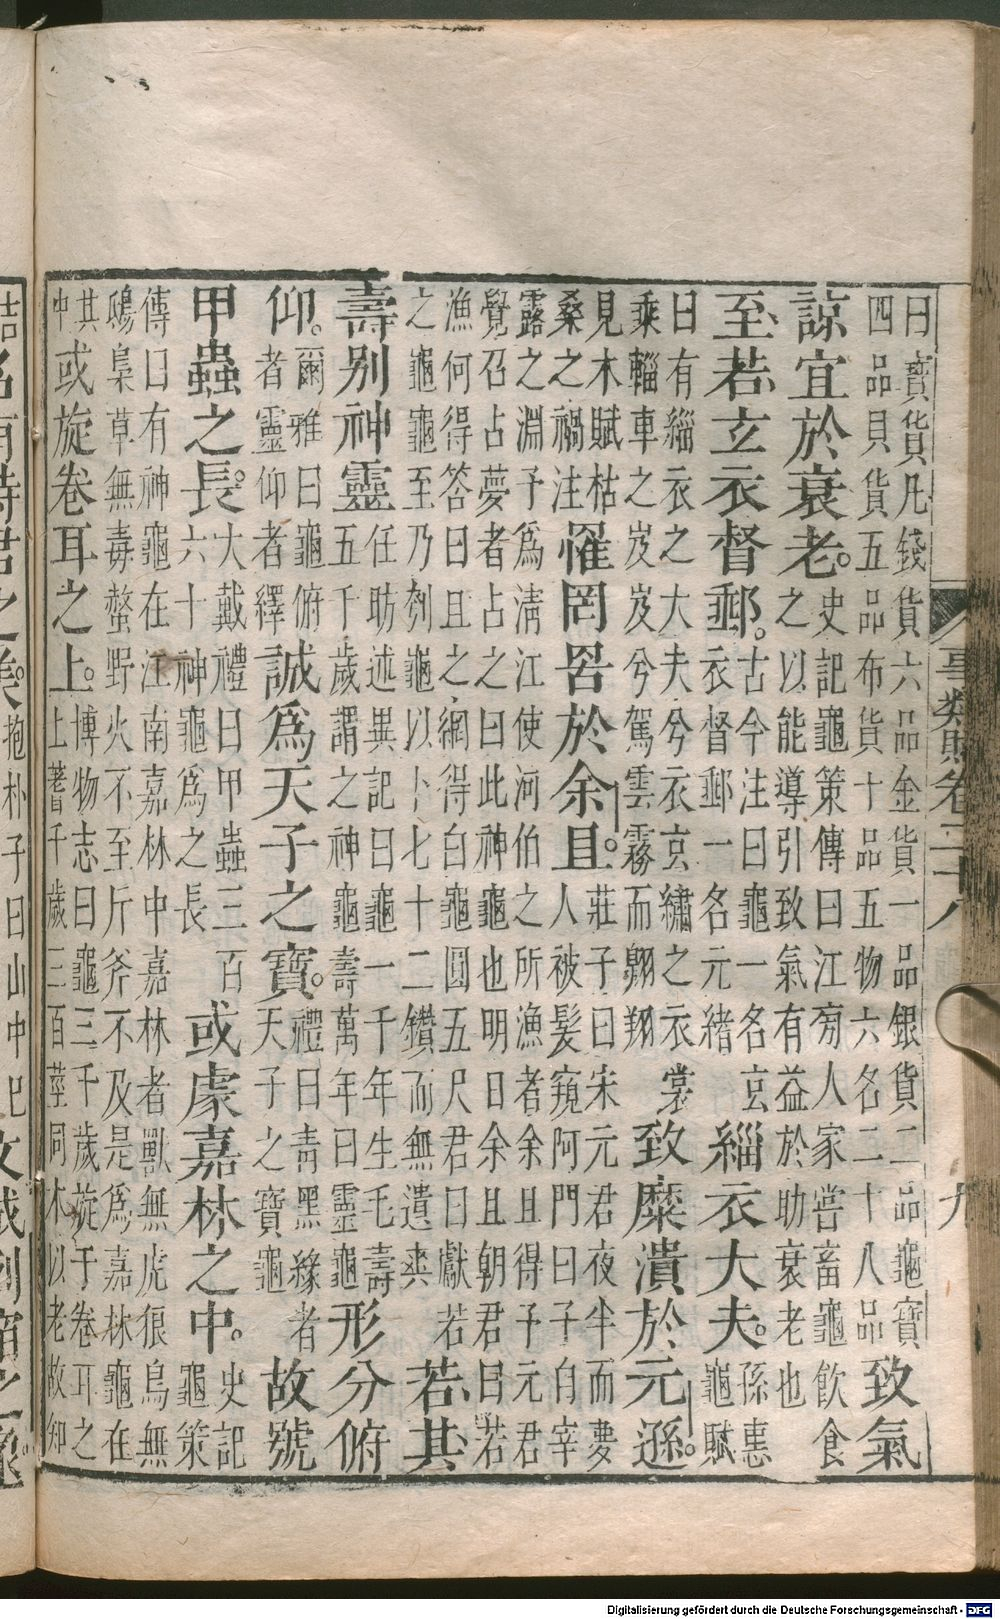 事類賦卷二十八
九
曰寶貨凡錢貨六品金貨一品銀貨二品龜寶
四品貝貨五品布貨十品五物六名二十八品
致氣
諒宜於衰老。
史記龜策傳曰江旁人家嘗畜龜飲食
之以能導引致氣有益於助衰老也
至若玄衣督郵。
古今注曰龜一名玄
衣督郵一名元緒
緇衣大夫。
孫惠
龜賦
曰有緇衣之大夫兮衣玄繡之衣裳
乘輜車之岌岌兮駕雲霧而翱翔
致糜潰於元遜。
見木賦枯
桑之禍注
罹罔罟於余且。
莊子曰宋元君夜半而夢
人被髮窺阿門曰予自宰
露之淵予為淸江使河伯之所漁者余且得予元君
覺召占夢者占之曰此神龜也明日余且朝君曰若
漁何得答曰且之網得白龜圓五尺君曰獻若
之龜龜至乃刳龜以卜七十二鑽而無遺筴
若其
壽別神靈
任昉述異記曰龜一千年生毛壽
五千歲謂之神龜壽萬年曰靈龜
形分俯
仰。
爾雅曰龜俯
者靈仰者繹
誠爲天子之寶。
禮曰靑黑緣者
天子之寶龜
故號
甲蟲之長。
大戴禮曰甲蟲三百
六十神龜爲之長
或處嘉林之中。
史記
龜策
傳曰有神龜在江南嘉林中嘉林者獸無虎狼鳥無
鴟梟草無毒螫野火不至斤斧不及是爲嘉林龜在
其
中
或旋卷耳之上。
博物志曰龜三千歲旋于卷耳之
上蓍千歲三百莖同木以老故知
抱朴子曰山中巳
Digitalisierung gefördert durch die Deutsche Forschungsgemeinschaft - DFG